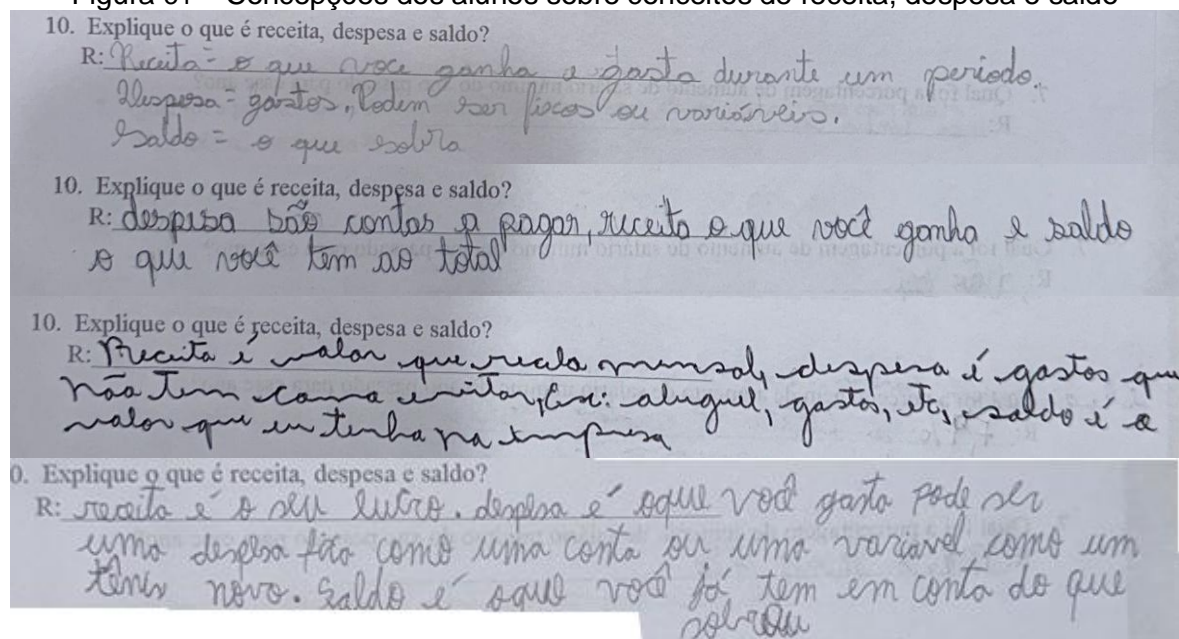 10. Explique o que é receita, despesa e saldo?
R: Receita = o que voce ganha e gasta durante um periodo.
Despesa = gastos. Podem ser fixos ou variáveis.
Saldo = o que sobra
10. Explique o que é receita, despesa e saldo?
R: despesa são contas a pagar, receita o que você ganha e saldo
o que você tem ao total
10. Explique o que é receita, despesa e saldo?
R: Receita é valor que mensal, despesa é gastos que
não tem como evitar, Ex: aluguel, gastos, etc, saldo é o
valor que eu tenho na empresa
0. Explique o que é receita, despesa e saldo?
R: receita é o seu lucro. despesa é oque você gasta pode ser
uma despesa fixa como uma conta ou uma variavel como um
tênis novo. Saldo é oque você já tem em conta do que
sobrou